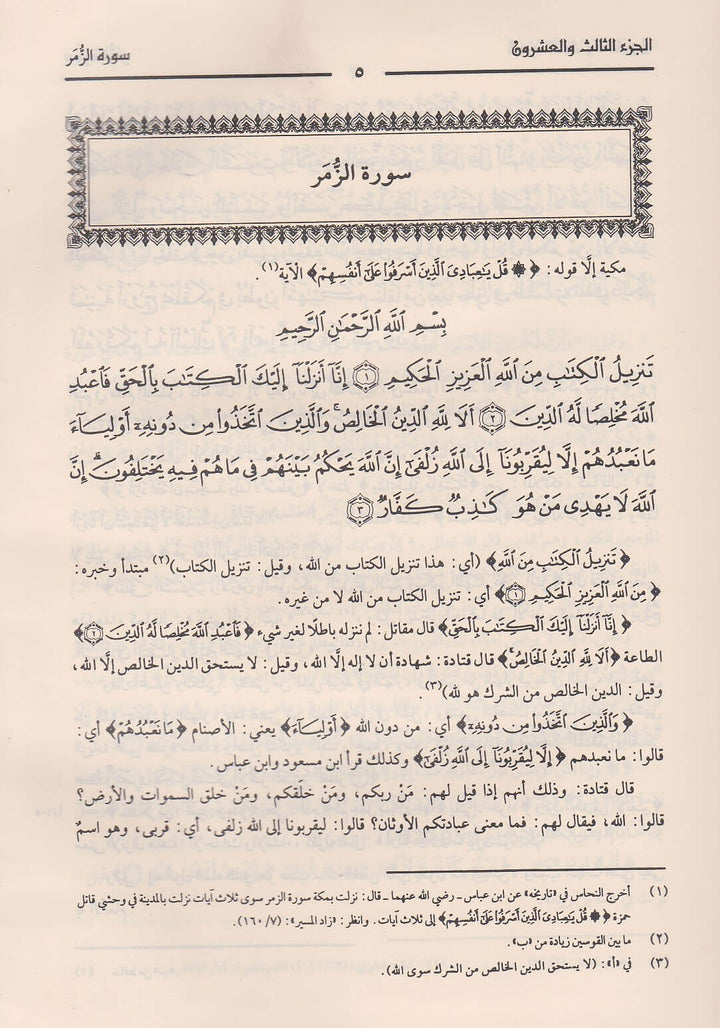 الجزء الثالث والعشرون
سورة الزُّمَر
٥
سورة الزُّمَر
مكية إلّا قوله: ﴿۞ قُلْ يَٰعِبَادِىَ ٱلَّذِينَ أَسْرَفُوا۟ عَلَىٰٓ أَنفُسِهِمْ﴾ الآية(١).
بِسْمِ ٱللَّهِ ٱلرَّحْمَٰنِ ٱلرَّحِيمِ
تَنزِيلُ ٱلْكِتَٰبِ مِنَ ٱللَّهِ ٱلْعَزِيزِ ٱلْحَكِيمِ ﴿١﴾ إِنَّآ أَنزَلْنَآ إِلَيْكَ ٱلْكِتَٰبَ بِٱلْحَقِّ فَٱعْبُدِ
ٱللَّهَ مُخْلِصًا لَّهُ ٱلدِّينَ ﴿٢﴾ أَلَا لِلَّهِ ٱلدِّينُ ٱلْخَالِصُ ۚ وَٱلَّذِينَ ٱتَّخَذُوا۟ مِن دُونِهِۦٓ أَوْلِيَآءَ
مَا نَعْبُدُهُمْ إِلَّا لِيُقَرِّبُونَآ إِلَى ٱللَّهِ زُلْفَىٰٓ إِنَّ ٱللَّهَ يَحْكُمُ بَيْنَهُمْ فِى مَا هُمْ فِيهِ يَخْتَلِفُونَ ۗ إِنَّ
ٱللَّهَ لَا يَهْدِى مَنْ هُوَ كَٰذِبٌ كَفَّارٌ ﴿٣﴾
﴿تَنزِيلُ ٱلْكِتَٰبِ مِنَ ٱللَّهِ﴾ (أي: هذا تنزيل الكتاب من الله، وقيل: تنزيل الكتاب)(٢) مبتدأ وخبره:
﴿مِنَ ٱللَّهِ ٱلْعَزِيزِ ٱلْحَكِيمِ ﴿١﴾﴾ أي: تنزيل الكتاب من الله لا من غيره.
﴿إِنَّآ أَنزَلْنَآ إِلَيْكَ ٱلْكِتَٰبَ بِٱلْحَقِّ﴾ قال مقاتل: لم ننزله باطلًا لغير شيء ﴿فَٱعْبُدِ ٱللَّهَ مُخْلِصًا لَّهُ ٱلدِّينَ ﴿٢﴾﴾
الطاعة ﴿أَلَا لِلَّهِ ٱلدِّينُ ٱلْخَالِصُ ۚ﴾ قال قتادة: شهادة أن لا إله إلّا الله، وقيل: لا يستحق الدين الخالص إلّا الله،
وقيل: الدين الخالص من الشرك هو لله)(٣).
﴿وَٱلَّذِينَ ٱتَّخَذُوا۟ مِن دُونِهِۦٓ﴾ أي: من دون الله ﴿أَوْلِيَآءَ﴾ يعني: الأصنام ﴿مَا نَعْبُدُهُمْ﴾ أي:
قالوا: ما نعبدهم ﴿إِلَّا لِيُقَرِّبُونَآ إِلَى ٱللَّهِ زُلْفَىٰٓ﴾ وكذلك قرأ ابن مسعود وابن عباس.
قال قتادة: وذلك أنهم إذا قيل لهم: مَنْ ربكم، ومَنْ خلَقكم، ومَنْ خلق السموات والأرض؟
قالوا: الله، فيقال لهم: فما معنى عبادتكم الأوثان؟ قالوا: ليقربونا إلى الله زلفى، أي: قربى، وهو اسمٌ
(١) أخرج النحاس في «تاريخه» عن ابن عباس ـ رضي الله عنهما ـ قال: نزلت بمكة سورة الزمر سوى ثلاث آيات نزلت بالمدينة في وحشي قاتل
حمزة ﴿۞ قُلْ يَٰعِبَادِىَ ٱلَّذِينَ أَسْرَفُوا۟ عَلَىٰٓ أَنفُسِهِمْ﴾ إلى ثلاث آيات. وانظر: «زاد المسير»: (٧/ ١٦٠).
(٢) ما بين القوسين زيادة من «ب».
(٣) في «أ»: (لا يستحق الدين الخالص من الشرك سوى الله).